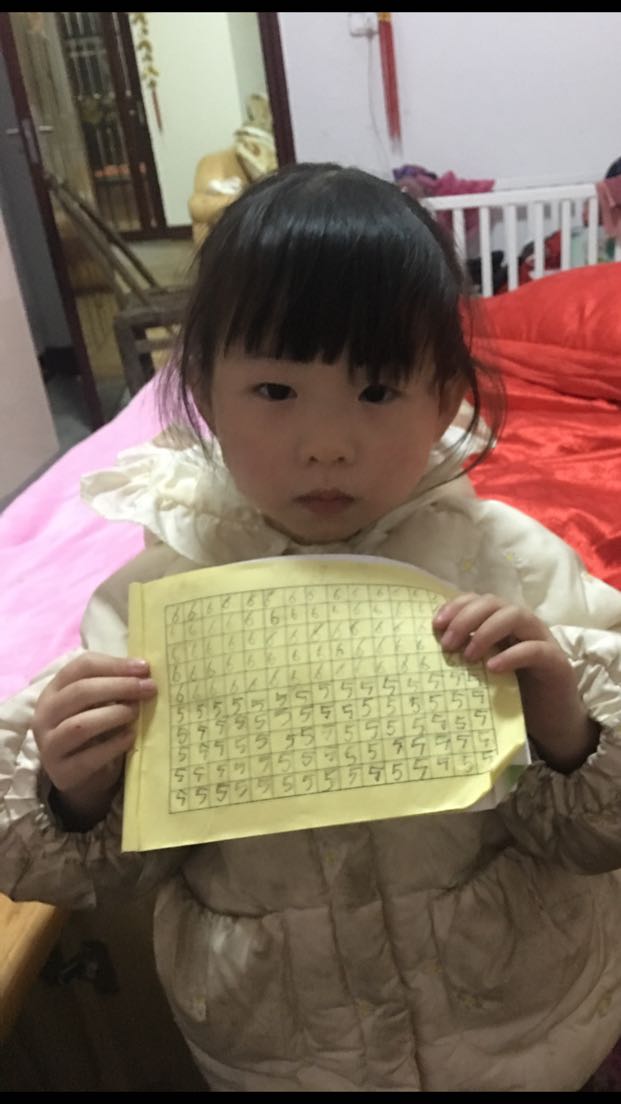 6 6 6 6 6 6 6 6 6 6 6 6 6 6
6 6 6 6 6 6 6 6 6 6 6 6 6
6 6 6 6 6 6 6 6 6 6 6 6 6
6 6 6 6 6 6 6 6 6 6 6 6 6
6 6 6 6 6 6 6 6 6 6 6 6 6
5 5 5 5 5 5 5 5 5 5 5 5 5 5 5
5 5 5 5 5 5 5 5 5 5 5 5 5 5 5
5 5 5 5 5 5 5 5 5 5 5 5 5 5 5
5 5 5 5 5 5 5 5 5 5 5 5 5 5 5
5 5 5 5 5 5 5 5 5 5 5 5 5 5 5